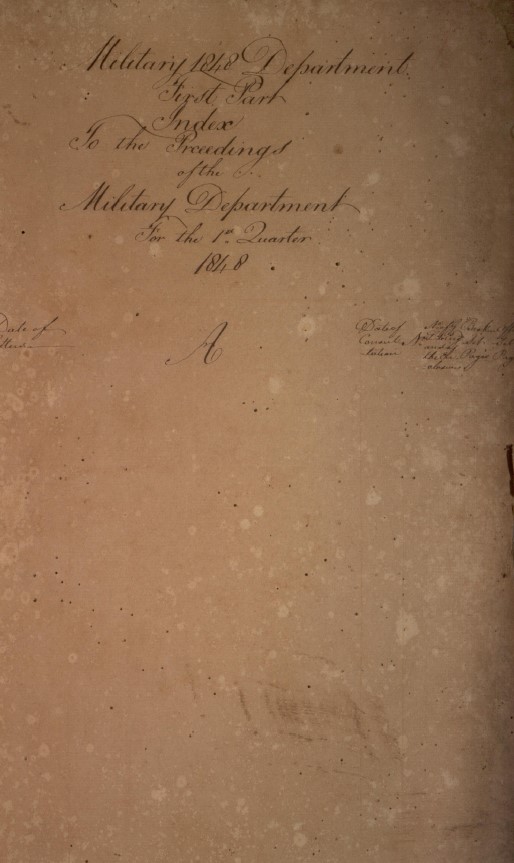 Military 1848 Department.
First Part
Index
To the Preedings
of the
Military Department
For the 1st Quarter
1848
Date of
A
Date of
Consul
tation